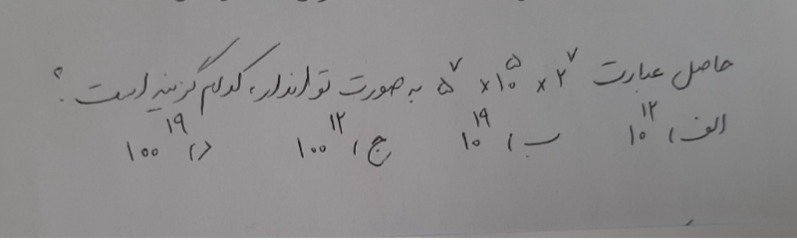 حاصل عبارت ۵^۷ × ۱۰^۵ × ۲^۷ به صورت تواندار، کدام گزینه است؟
الف) ۱۰^۱۲ ب) ۱۰^۱۹ ج) ۱۰۰^۱۲ د) ۱۰۰^۱۹